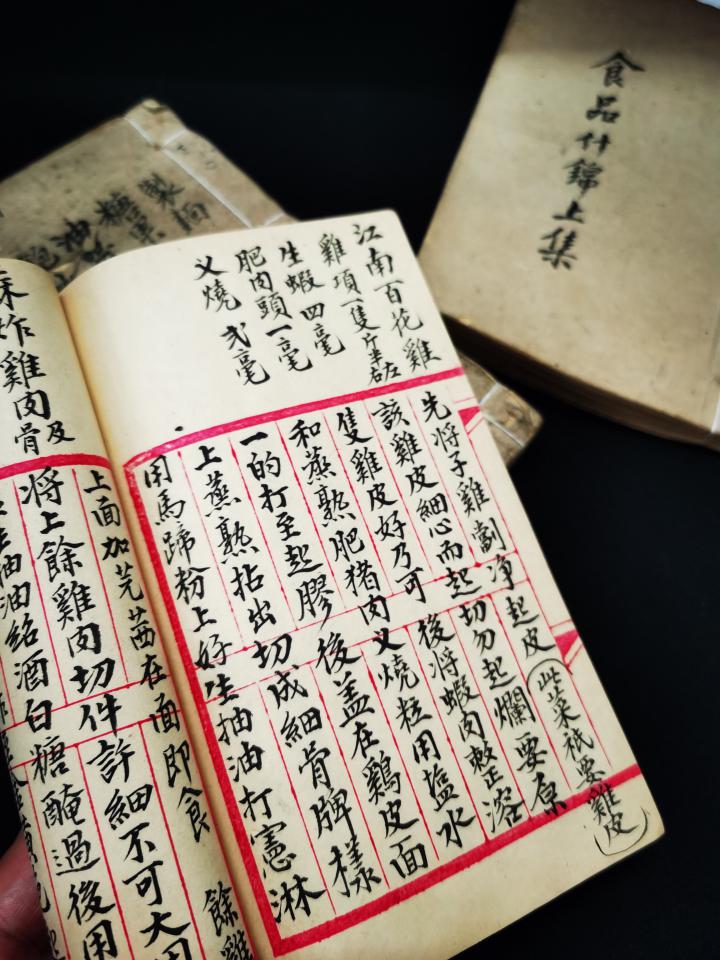 食品什錦上集
製麺
糖菓
油
江南百花雞
雞項一隻斤半左右
生蝦四毫
肥肉頭一毫
义燒弍毫
先將子雞劏净起皮(此菜祇要雞皮)
該雞皮細心而起切勿起爛要原
隻雞皮好乃可後將蝦肉整溶
和蒸熟肥猪肉义燒粒用塩水
一的打至起膠後盖在鷄皮面
上蒸熟拈出切成細骨牌樣
用馬蹄粉上好生抽油打憲淋
上面加芫茜在面即食 餘雞
炸雞肉及骨
將上餘雞肉切件許細不可大用
抽油紹酒白糖醃過後用